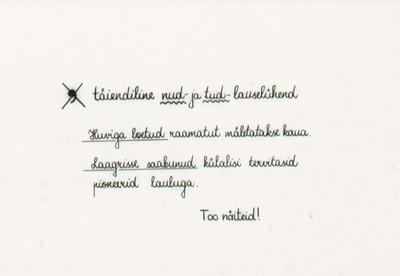 täiendiline nud- ja tud-lauselühend
Huviga loetud raamatut mäletatakse kaua.
Laagrisse saabunud külalisi tervitasid
pioneerid lauluga.
Too näiteid!